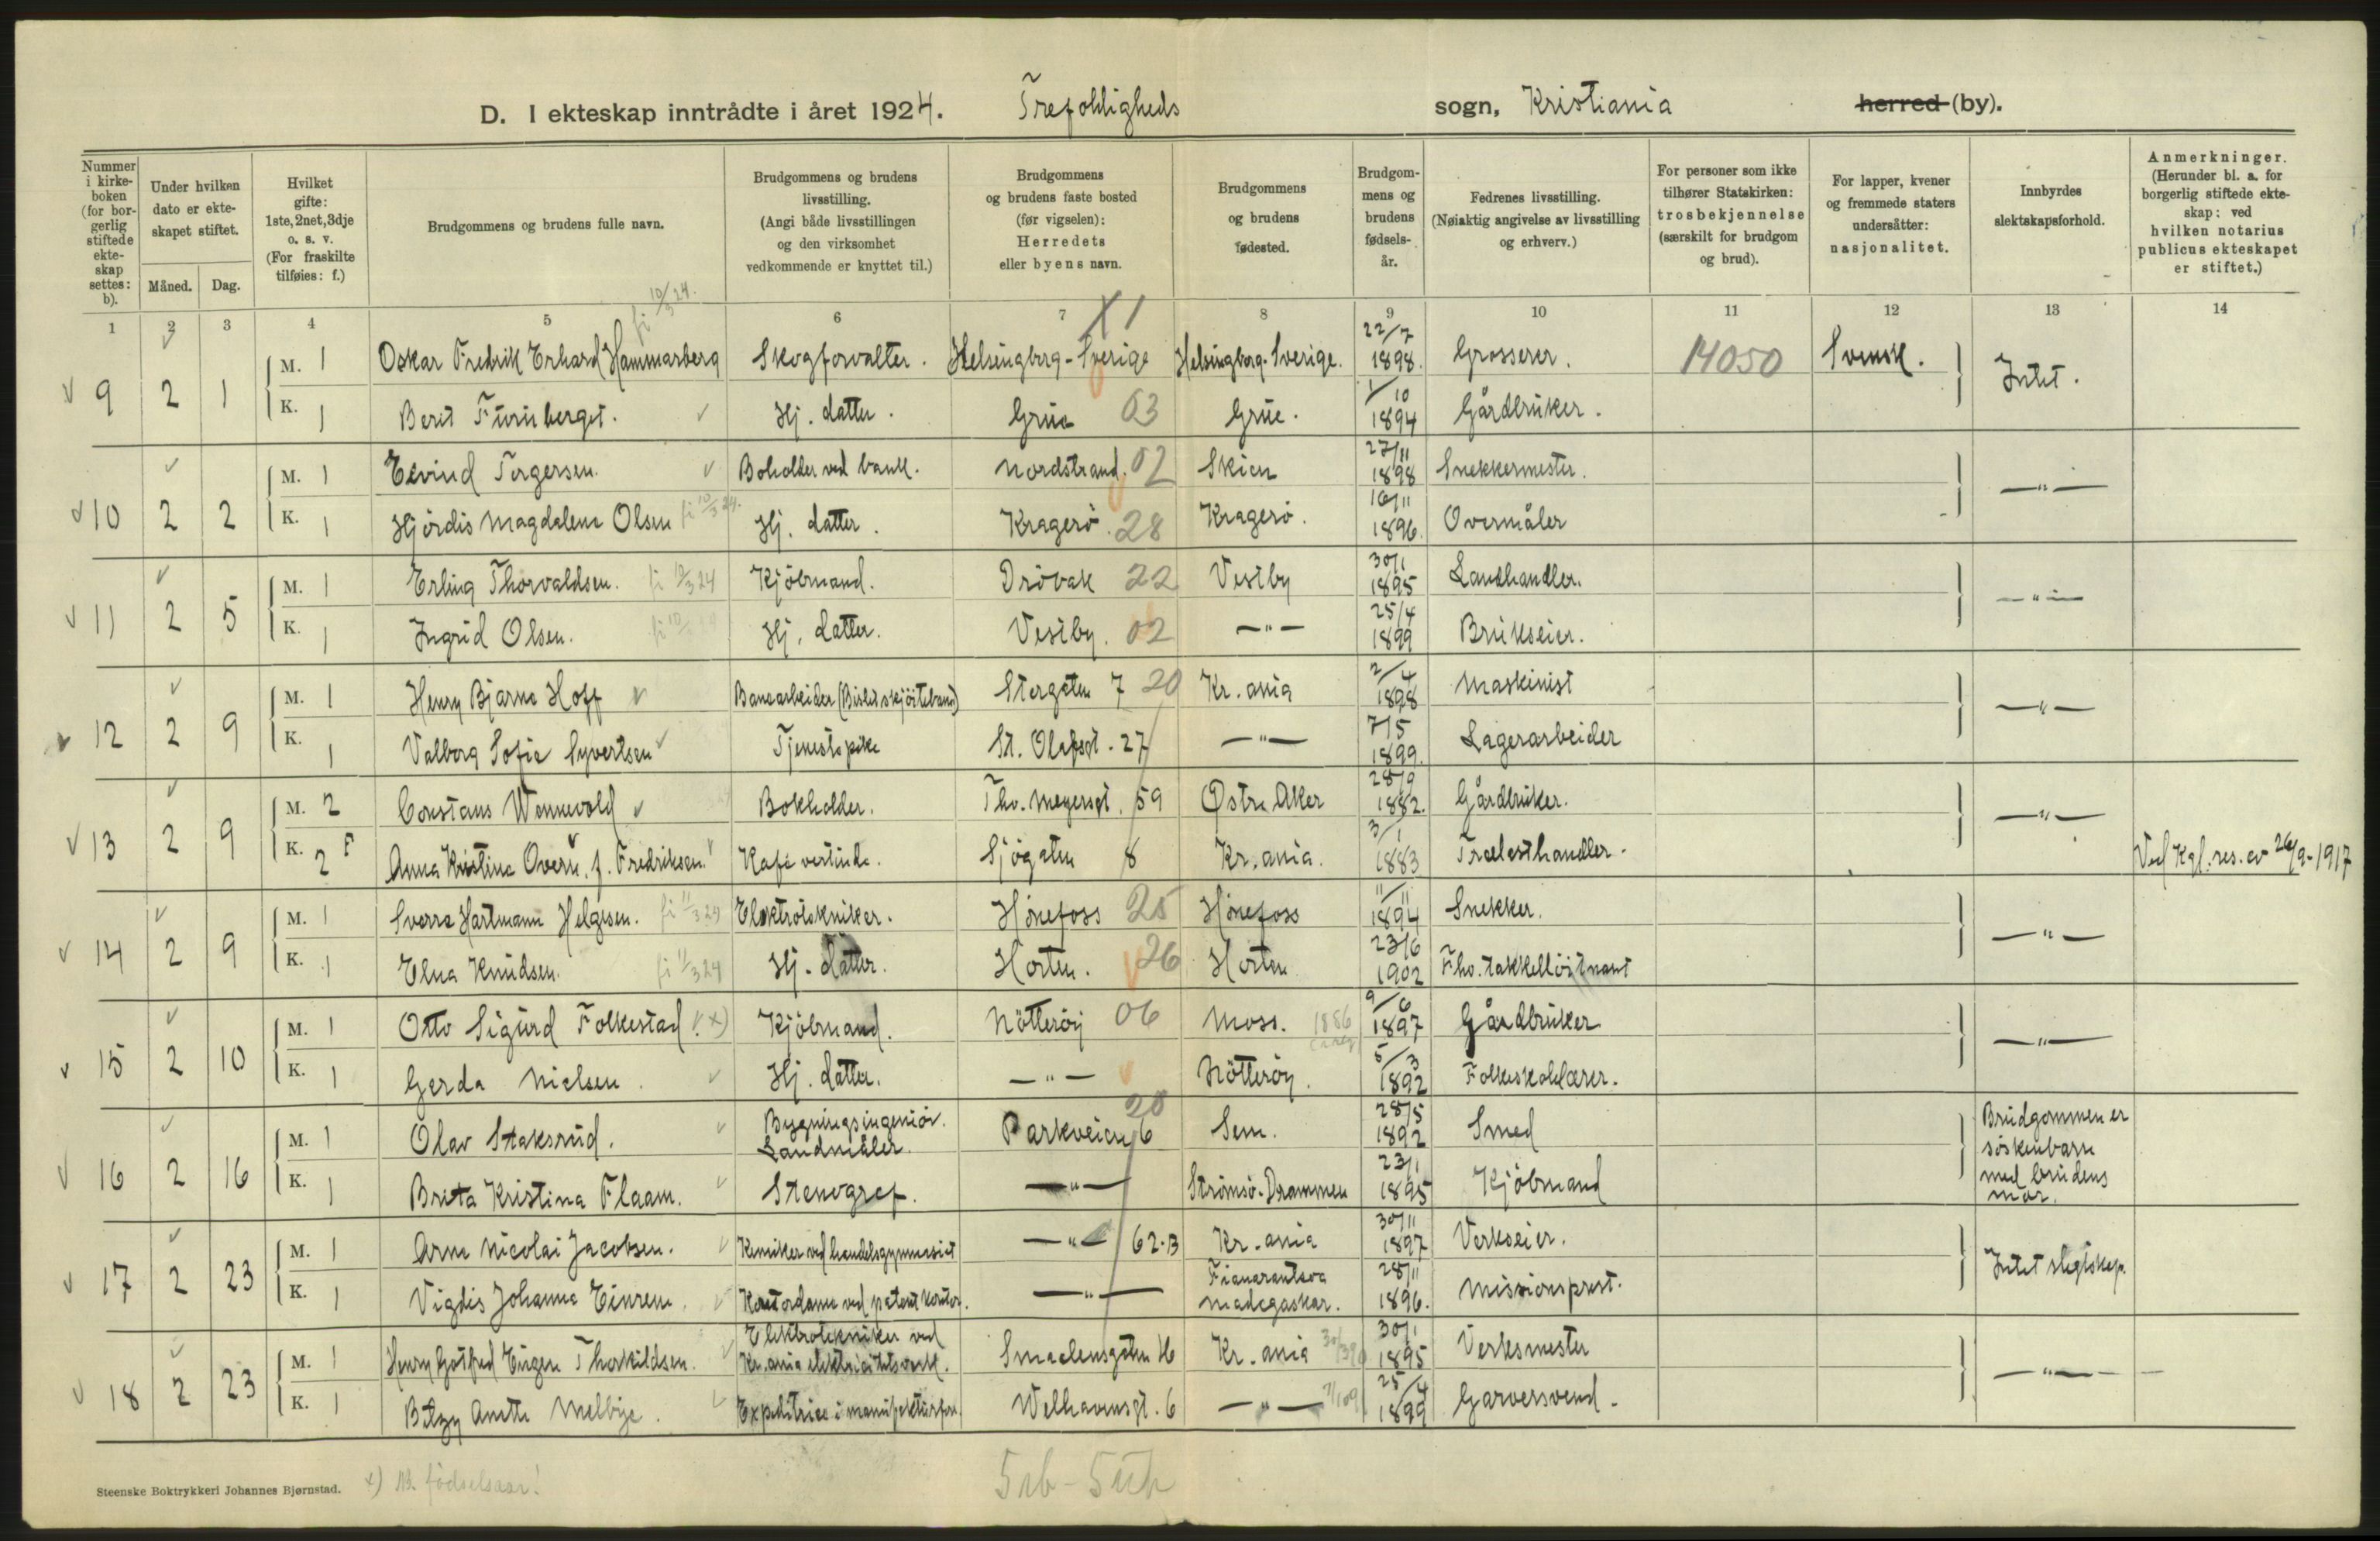 D. I ekteskap inntrådte i året 1924. Trefoldigheds sogn, Kristiania herred (by).
Nummer i kirke-boken (for bor-gerlig stiftede ekte-skap settes: b).
Under hvilken dato er ekte-skapet stiftet.
Måned. Dag.
Hvilket gifte: 1ste, 2net, 3dje o. s. v. (For fraskilte tilføies: f.)
Brudgommens og brudens fulle navn.
Brudgommens og brudens livsstilling. (Angi både livsstillingen og den virksomhet vedkommende er knyttet til.)
Brudgommens og brudens faste bosted (før vigselen): Herredets eller byens navn.
Brudgommens og brudens fødested.
Brudgom-mens og brudens fødsels-år.
Fedrenes livsstilling. (Nøiaktig angivelse av livsstilling og erhverv.)
For personer som ikke tilhører Statskirken: trosbekjennelse (særskilt for brudgom og brud).
For lapper, kvener og fremmede staters undersåtter: nasjonalitet.
Innbyrdes slektskapsforhold.
Anmerkninger. (Herunder bl. a. for borgerlig stiftede ekte-skap: ved hvilken notarius publicus ekteskapet er stiftet.)
1 2 3 4 5 6 7 8 9 10 11 12 13 14
fi 10/3 24. X1
9 2 1 M. 1 Oskar Fredrik Erhard Hammarberg Skogforvalter. Helsingborg-Sverige Helsingborg-Sverige. 22/7 1898. Grosserer. 14050 Svensk. Intet.
K. 1 Berit Furuberget. Hj. datter. Grue 03 Grue. 1/10 1894 Gårdbruker.
10 2 2 M. 1 Eivind Torgersen. Boholder ved bank. Nordstrand. 02 Skien 27/11 1898 Snekkermester. —"—
K. 1 Hjördis Magdalene Olsen fi 10/3 24. Hj. datter. Kragerö. 28 Kragerö. 16/11 1896. Overmåler
11 2 5 M. 1 Erling Thorvaldsen. fi 10/3 24 Kjöbmand. Dröbak 22 Vestby 30/1 1895 Landhandler. —"—
K. 1 Ingrid Olsen. fi 10/ Hj. datter. Vestby. 02 —"— 25/4 1899 Brukseier.
12 2 9 M. 1 Henry Bjarne Hoff Banearbeider (Bislet skjöitebane) Storgaten 7 20 Kr.ania 2/4 1898 Maskinist —"—
K. 1 Valborg Sofie Syvertsen Tjenestepike St. Olafsgt. 27 —"— 7/5 1899. Lagerarbeider
13 2 9 M. 2 Constans Wennevold Bokholder. Thv. Meyersgt. 59 Østre Aker 28/9 1882. Gårdbruker. —"—
K. 2 F Anna Kristine Overn, f. Fredriksen. Kafe vertinde. Sjögaten 8 Kr.ania. 3/1 1883 Trælasthandler. Ved Kgl. res. av 26/9-1917
14 2 9 M. 1 Sverre Hartmann Helgesen. fi 11/3 24 Elektrotekniker. Hönefoss 25 Hönefoss 11/11 1894 Snekker. —"—
K. 1 Elna Knudsen. fi 11/3 24 Hj. datter. Horten. 26 Horten 23/6 1902 Fhv. takkellöitnant
15 2 10 M. 1 Otto Sigurd Folkestad. x) Kjöbmand. Nötteröy 06 Moss. 1886 9/6 1897 Gårdbruker —"—
K. 1 Gerda Nielsen. Hj. datter. —"— Nötteröy. 5/3 1892 Folkeskolelærer.
16 2 16 M. 1 Olav Staksrud. Bygningsingeniör. Landmåler. Parkveien 6 20 Sem. 28/5 1892 Smed Brudgommen er söskenbarn med brudens mor.
K. 1 Brita Kristina Flaam. Stenograf. —"— Strömsö-Drammen 23/1 1895 Kjöbmand
17 2 23 M. 1 Arne Nicolai Jacobsen. Kemiker ved handelsgymnasiet —"— 62.B Kr.ania 30/11 1897 Verkseier. Intet slegtskap.
K. 1 Vigdis Johanne Einrem. Kontordame ved patent kontor. —"— Fianarantsoa Madagaskar. 28/11 1896. Missionsprest.
18 2 23 M. 1 Henry Gotfred Eugen Thorkildsen. Elektrotekniker ved Kr.ania elektricitetsverk. Smaalensgaten 16 Kr.ania 30/1 1895 Verksmester —"—
K. 1 Betzy Anette Melbye. Expeditrice i manufakturfor. Welhavensgt. 6 —"— 25/4 1899 Garversvend.
Steenske Boktrykkeri Johannes Bjørnstad. x) NB. födselsaar!